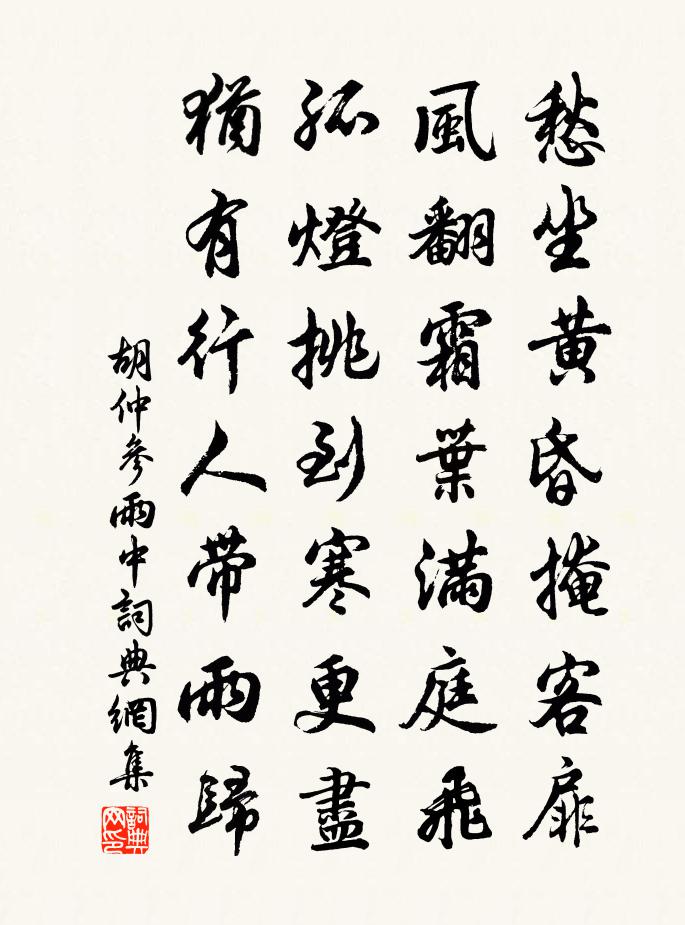 愁坐黃昏掩客扉
風翻霜葉滿庭飛
孤燈挑到寒更盡
猶有行人帶雨歸
胡仲參雨中詞典網集
詞典網印